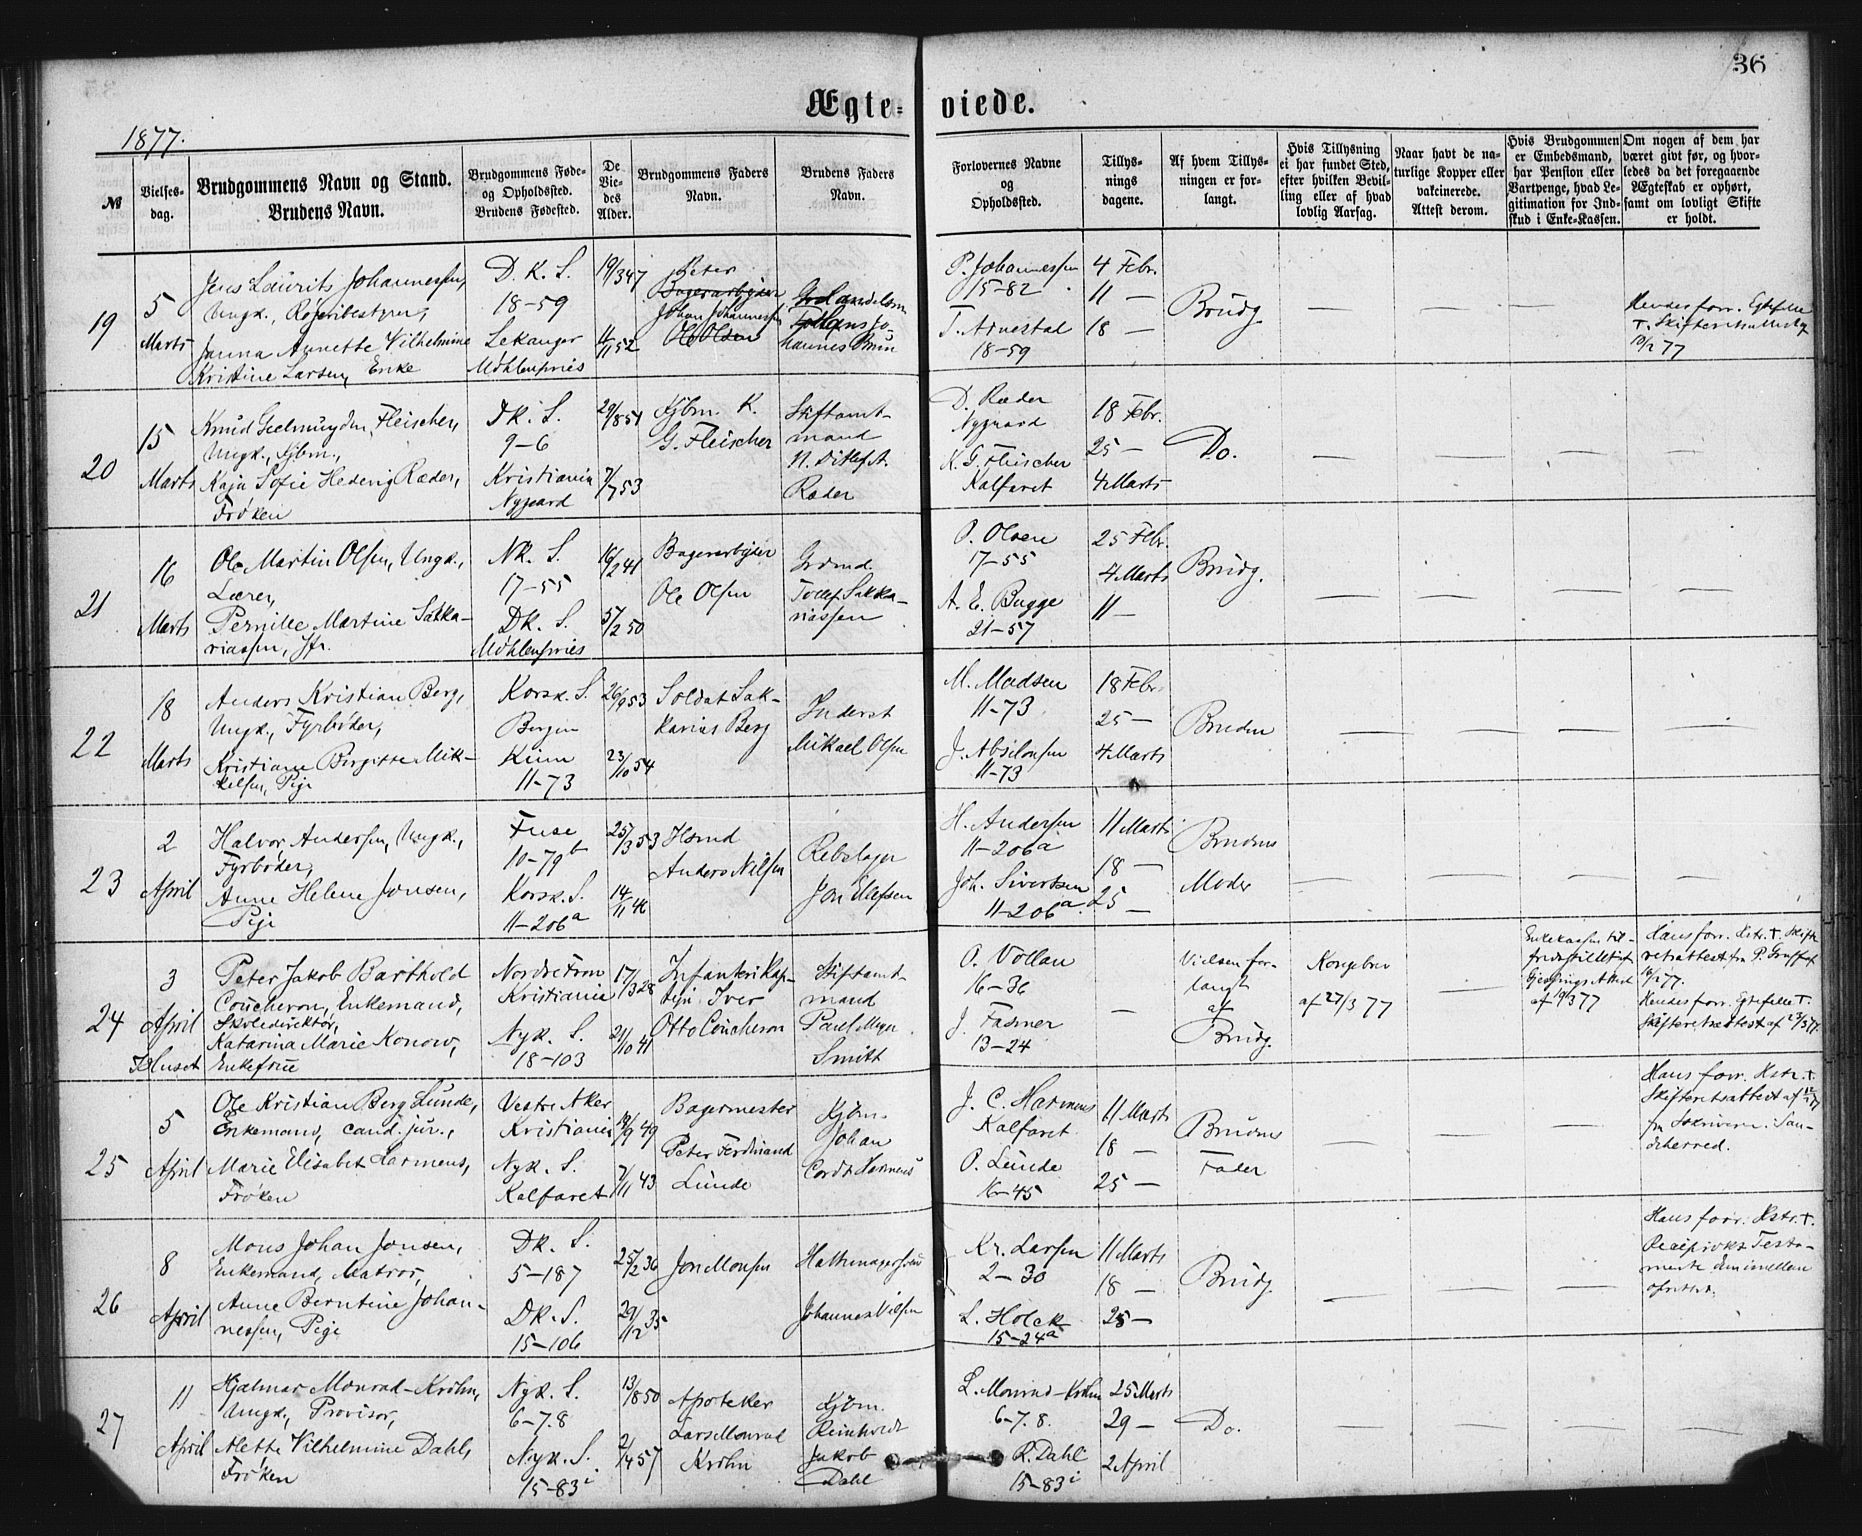 36
Ægte- viede.
1877.
№
Vielses-
dag.
Brudgommens Navn og Stand.
Brudens Navn.
Brudgommens Føde-
og Opholdssted.
Brudens Fødested.
De
Vie-
des
Alder.
Brudgommens Faders
Navn.
Brudens Faders
Navn.
Forlovernes Navne
og
Opholdssted.
Tillys-
nings
dagene.
Af hvem Tillys-
ningen er for-
langt.
Hvis Tillysning
ei har fundet Sted,
efter hvilken Bevil-
ling eller af hvad
lovlig Aarsag.
Naar havt de na-
turlige Kopper eller
vakcinerede.
Attest derom.
Hvis Brudgommen
er Embedsmand,
har Pension eller
Vartpenge, hvad Le-
gitimation for Ind-
skud i Enke-Kassen.
Om nogen af dem har
været givt før, og hvor-
ledes da det foregaaende
Ægteskab er ophørt,
samt om lovligt Skifte
er holdt.
19
5
Marts
Jens Laurits Johannessen,
Ungk., Røgeribestyrer,
Janna Annette Vilhelmine
Kristine Larsen, Enke
D. K. S.
18-59
Lekanger
Møhlenpriés
19/3 47
11/11 52
Peter
Bagerarbeider
Johan Johannessen
Ole Olsen
hannes Brun
P. Johannessen
15-82
T. Arnestal
18-59
4 Febr.
11 —
18 —
Brudg.
Hendes forr. Egtefelle
†. Skifteretsattest af
10/2 77
20
15
Marts
Knud Geelmuyden Fleischer,
Ungk., Kjbm.,
Kaja Sofie Hedevig Ræder,
Frøken
Dk. S.
9-6
Kristiania
Nygaard
29/8 51
7/7 53
Kjbm. K.
G. Fleischer
Stiftamt-
mand
N. Ditlef A.
Ræder
D. Ræder
Nygaard
K. G. Fleischer
Kalfaret
18 Febr.
25 —
4 Marts
Do.
21
16
Marts
Ole Martin Olsen, Ungk.,
Lærer,
Pernille Martine Sakka-
riassen, Jfr.
Nk. S.
17-55
Dk. S.
Møhlenpriés
16/2 41
5/2 50
Bagerarbeider
Ole Olsen
Grdmd.
Tollef Sakka-
riassen
O. Olsen
17-55
A. E. Bugge
21-57
25 Febr.
4 Marts
11 —
Brudg.
22
18
Marts
Anders Kristian Berg,
Ungk., Fyrbøder,
Kristiane Birgitte Mik-
kelsen, Pige
Korsk. S.
Bergen
Kinn
11-73
26/9 53
23/10 54
Soldat Sak-
karias Berg
Inderst
Mikael Olsen
M. Madsen
11-73
J. Absilonsen
11-73
18 Febr.
25 —
4 Marts
Bruden
23
2
April
Halvor Andersen, Ungk.,
Fyrbøder,
Anne Helene Jonsen,
Pige
Fuse
10-79b
Korsk. S.
11-206a
25/3 53
14/11 46
Hsmd
Anders Nilsen
Rebslager
Jon Ellefsen
H. Andersen
11-206a
Joh. Sivertsen
11-206a
11 Marts
18 —
25 —
Brudens
Moder
24
3
April
I Huset
Peter Jakob Barthold
Coucheron, Enkemand,
Skoledirektør,
Katarina Marie Konow,
Enkefrue
Nordre Fron
Kristiania
Nyk. S.
18-103
17/3 28
21/10 41
Infanterikap-
tein Iver
Otto Coucheron
Stiftamt-
mand
Paul Meyer
Smitt
O. Vollan
16-36
J. Fasmer
13-24
—
Vielsen for-
langt
af
Brudg.
Kongebrev
af 27/3 77
Enkekassen til-
fredsstillet if.
af 19/3 77
Hans forr. Hstr. †. Skifte
retsattest fra P. Gruffst
10/1 77.
Hendes forr. Egtefelle †.
Skifteretsattest af 23/3 77.
25
5
April
Ole Kristian Berg Lunde,
Enkemand, cand. jur.,
Marie Elisabet Harmens,
Frøken
Vestre Aker
Kristiania
Nyk. S.
Kalfaret
19/9 49
7/11 43
Bagermester
Peter Ferdinand
Lunde
Kjøbm.
Johan
Cordt Harmens
J. C. Harmens
Kalfaret
O. Lunde
16-45
11 Marts
18 —
25 —
Brudens
Fader
Hans forr. Hstr. †.
Skifteretsattest af
fra Sskriveren i San-
deherred.
26
8
April
Mons Johan Jonsen,
Enkemand, Matros,
Anne Berntine Johan-
nessen, Pige
Dk. S.
5-187
Dk. S.
15-106
25/2 36
29/12 35
Jon Monsen
Hattemagersvend
Johannes Nilsen
Kr. Larsen
2-30
L. Holck
15-24a
11 Marts
18 —
25 —
Brudg.
Hans forr. Hstr. †.
Reciprokt Testa-
mente dem imellem
oprettet.
27
11
April
Hjalmar Monrad-Krohn,
Ungk., Provisor,
Alette Vilhelmine Dahl,
Frøken
Nyk. S.
6-7.8
Nyk. S.
15-83i
13/8 50
2/4 57
Apoteker
Lars Monrad
Krohn
Kjøbm.
Reinholdt
Jakob
Dahl
L. Monrad-Krohn
6-7.8.
R. Dahl
15-83i
25 Marts
29 —
2 April
Do.